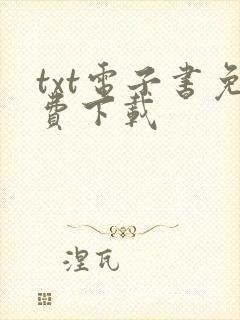 txt電子書免
費下載
涅瓦